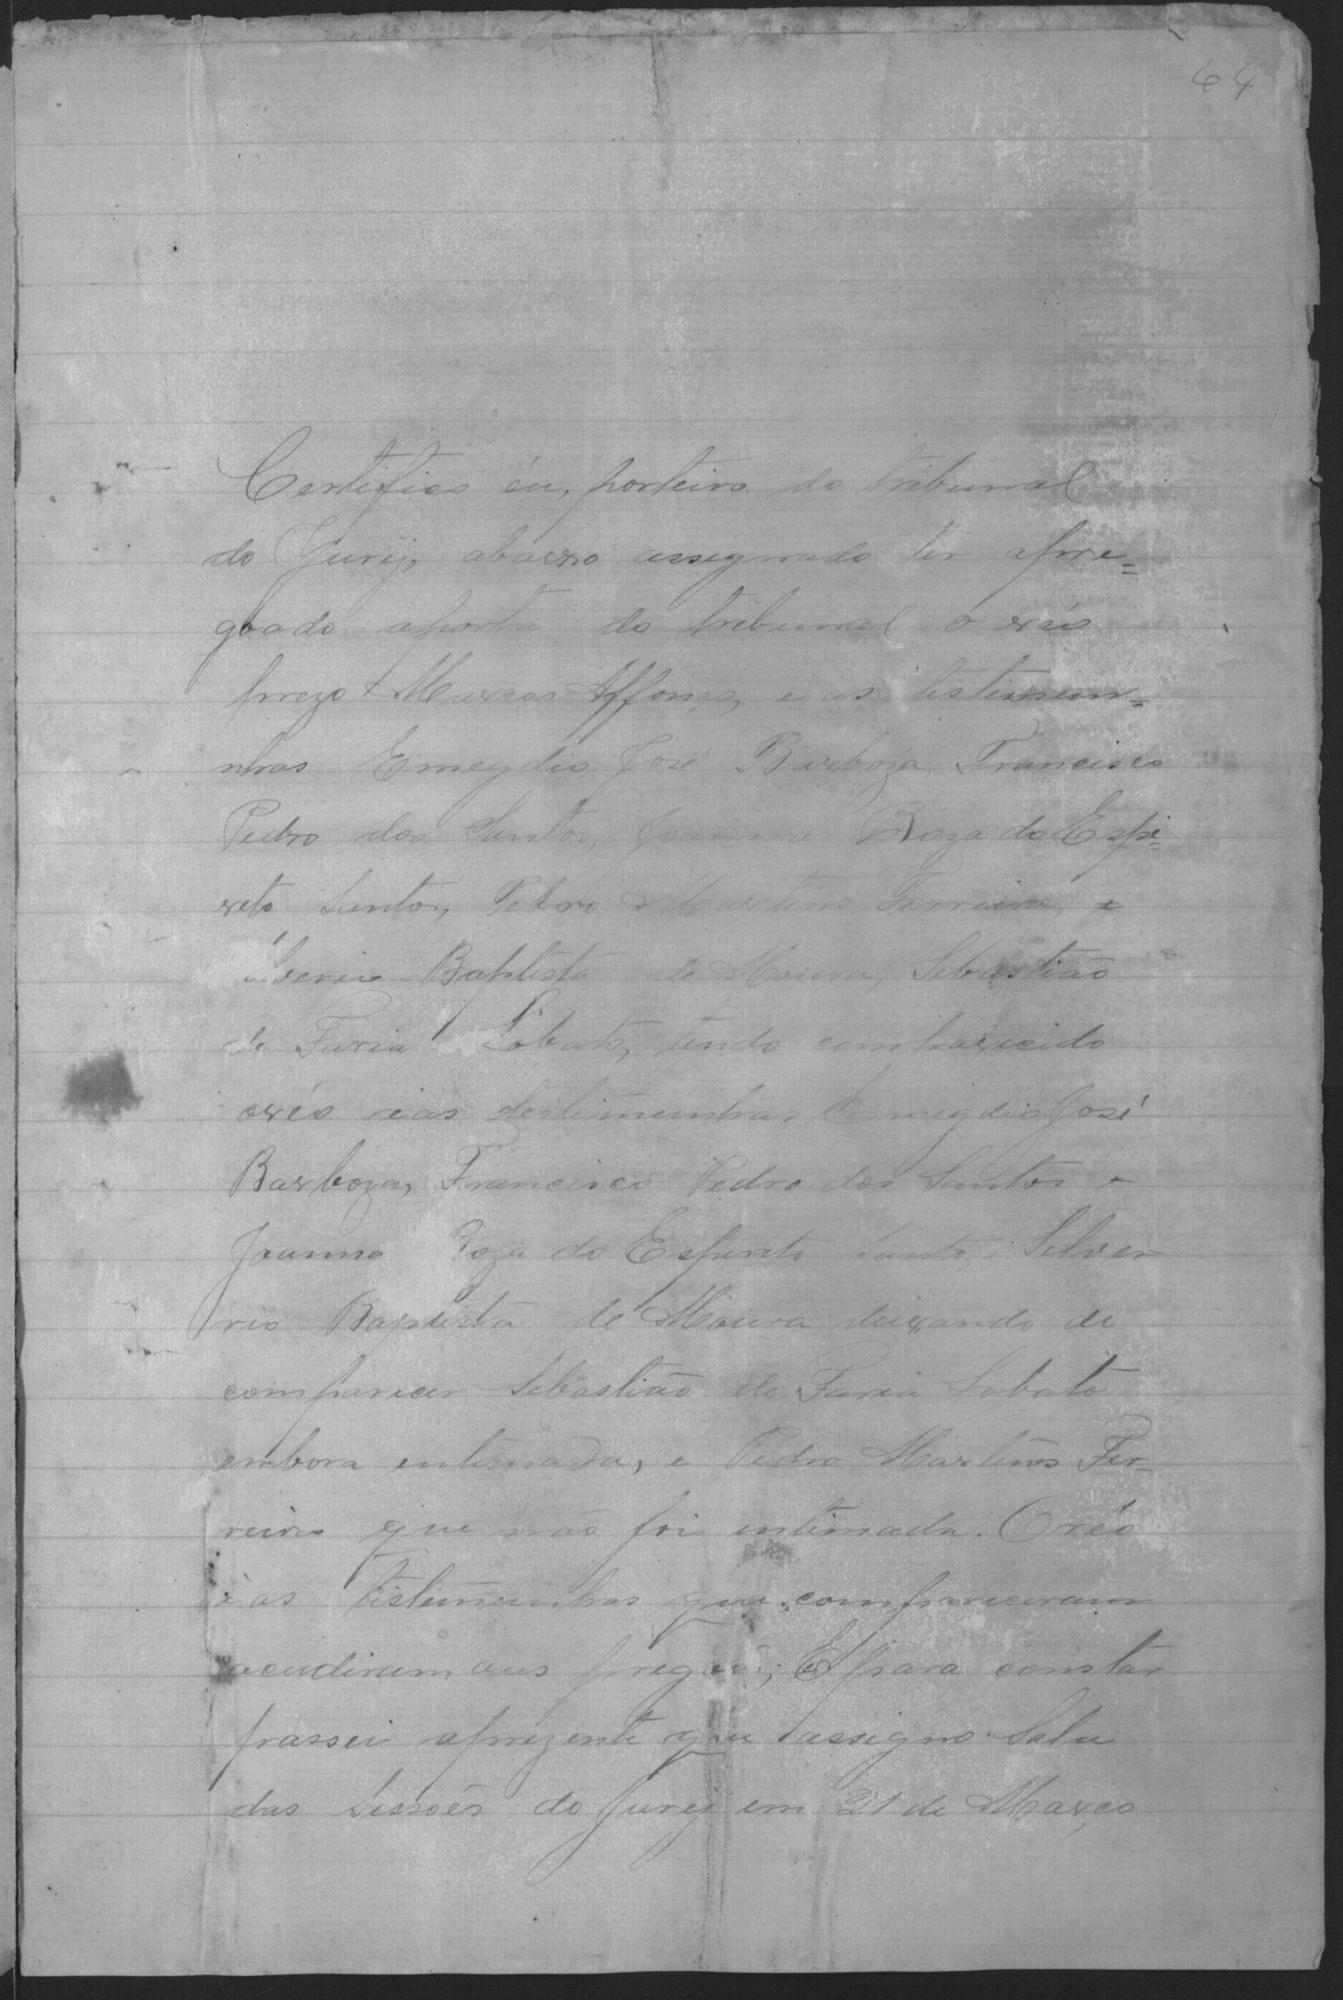 64
Certifico eu, porteiro do tribunal
do Jury, abaixo assignado ter apre=
goado aporta do tribunal o réo
prezo Marcos Affonso, e as testimun=
nhas Emegdio José Barboza, Francisco
Pedro dos Santos, Joanna Roza do Espi=
reto Santo, Pedro Martins Ferreira, e
verio Baptista de Moura, Sebastião
de Faria Lobato, tendo comparicido
oréo eas testimunhas Emegdio José
Barboza, Francisco Pedro dos Santos e
Joanna Roza do Espireto Santo, Silver
rio Baptista de Moura deixando de
comparicer Sebastião de Faria Lobato
embora entimada, e Pedro Martins Fer=
reira que não foi entimada. Oréo
e as testimunhas que compareceram
acudiram aus pregões; E para constar
passei aprezente que assigno. Sala
das Sessões do Jury em 21 de Março